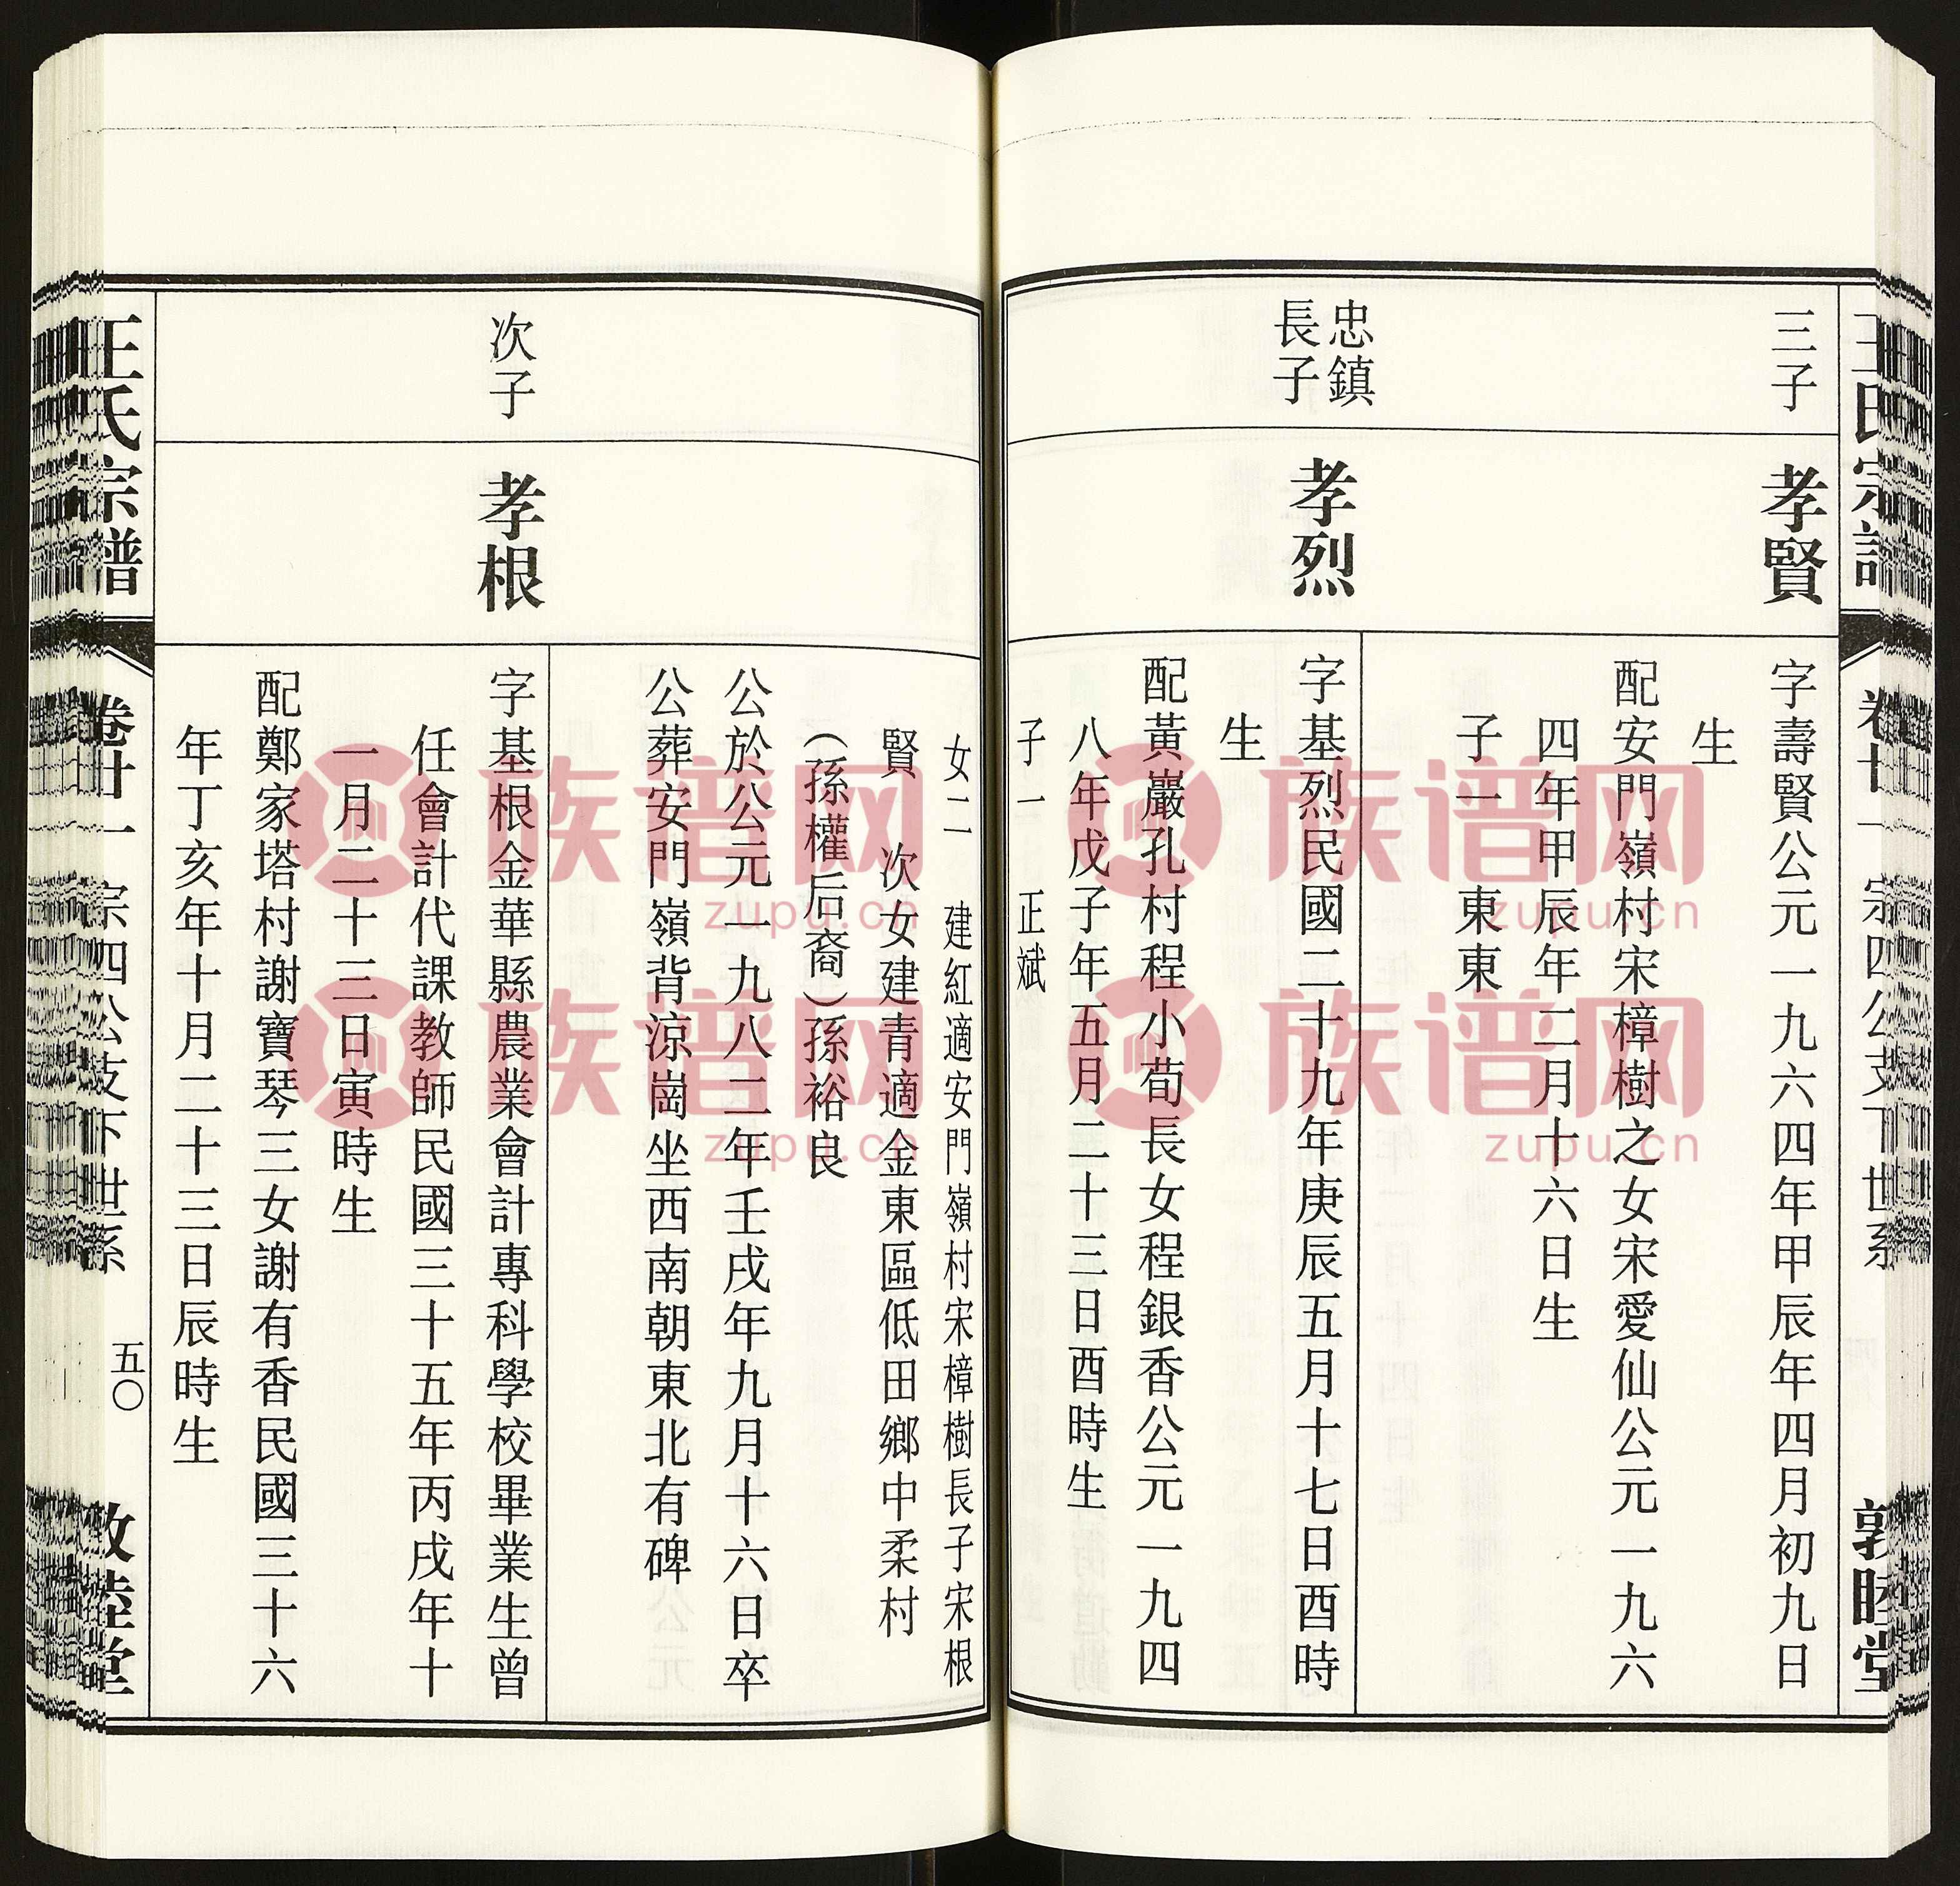 三子
孝賢
字壽賢公元一九六四年甲辰年四月初九日
生
配安門嶺村宋樟樹之女宋愛仙公元一九六
四年甲辰年二月十六日生
子一　東東
忠鎮
長子
孝烈
字基烈民國二十九年庚辰五月十七日酉時
生
配黃巖孔村程小荀長女程銀香公元一九四
八年戊子年五月二十三日酉時生
子一　正斌
女二　建紅適安門嶺村宋樟樹長子宋根
賢　次女建青適金東區低田鄉中柔村
（孫權后裔）孫裕良
公於公元一九八二年壬戌年九月十六日卒
公葬安門嶺背涼崗坐西南朝東北有碑
次子
孝根
字基根金華縣農業會計專科學校畢業生曾
任會計代課教師民國三十五年丙戌年十
一月二十三日寅時生
配鄭家塔村謝寶琴三女謝有香民國三十六
年丁亥年十月二十三日辰時生
王氏宗譜
卷廿一
宗四公支下世系
五〇
敦睦堂
族谱网
zupu.cn
族谱网
zupu.cn
族谱网
zupu.cn
族谱网
zupu.cn